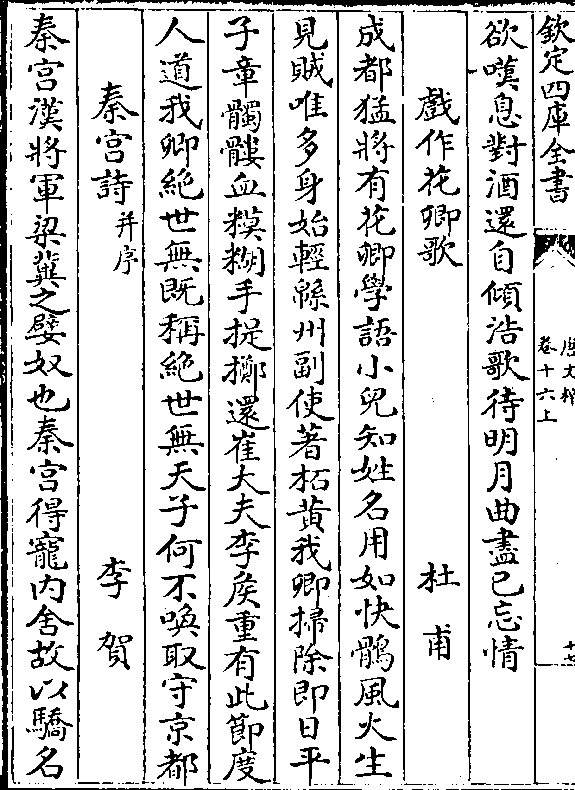 欽定四庫全書
唐文粹
卷十六上
十七
欲嘆息對酒還自傾浩歌待明月曲盡已忘情
戲作花卿歌　杜甫
成都猛將有花卿學語小兒知姓名用如快鶻風火生
見賊唯多身始輕緜州副使著柘黄我卿掃除即日平
子章髑髏血糢糊手提擲還崔大夫李矦重有此節度
人道我卿絶世無既稱絶世無天子何不喚取守京都
秦宫詩并序　李賀
秦宫漢將軍梁冀之嬖奴也秦宫得寵内舍故以驕名